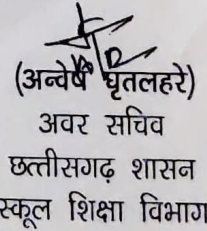 (अन्वेष घृतलहरे)
अवर सचिव
छत्तीसगढ़ शासन
स्कूल शिक्षा विभाग